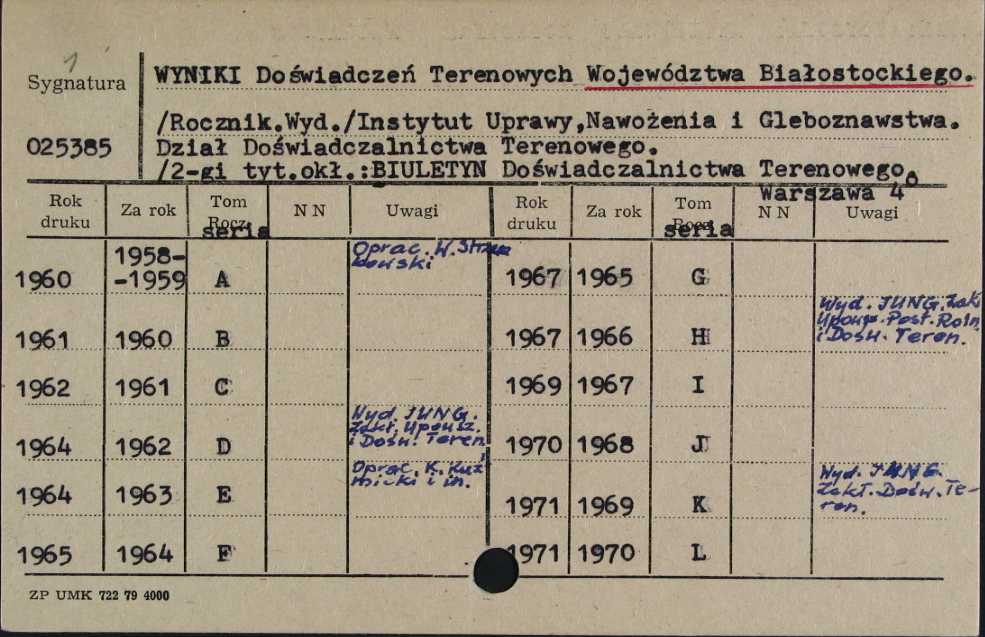 1
Sygnatura
WYNIKI Doświadczeń Terenowych Województwa Białostockiego.
/Rocznik.Wyd./Instytut Uprawy,Nawożenia i Gleboznawstwa.
025385
Dział Doświadczalnictwa Terenowego.
/2-gi tyt.okł.:BIULETYN Doświadczalnictwa Terenowego.
Warszawa 4°
Rok druku Za rok Tom Rocz. seria N N Uwagi Rok druku Za rok Tom Rocz. seria N N Uwagi
1960 1958--1959 A Oprac. W. 1967 1965 G
1961 1960 B 1967 1966 H Wyd. JUNG. Zakł. Upowsz. Post. Roln. i Dośw. Teren.
1962 1961 C 1969 1967 I
1964 1962 D Wyd. JUNG. Zakł. Upowsz. i Dośw. Teren. 1970 1968 J
1964 1963 E Oprac. K. Kuźmicki i in. 1971 1969 K Wyd. JUNG. Zakł. Dośw. Te-ren.
1965 1964 F 1971 1970 L
ZP UMK 722 79 4000